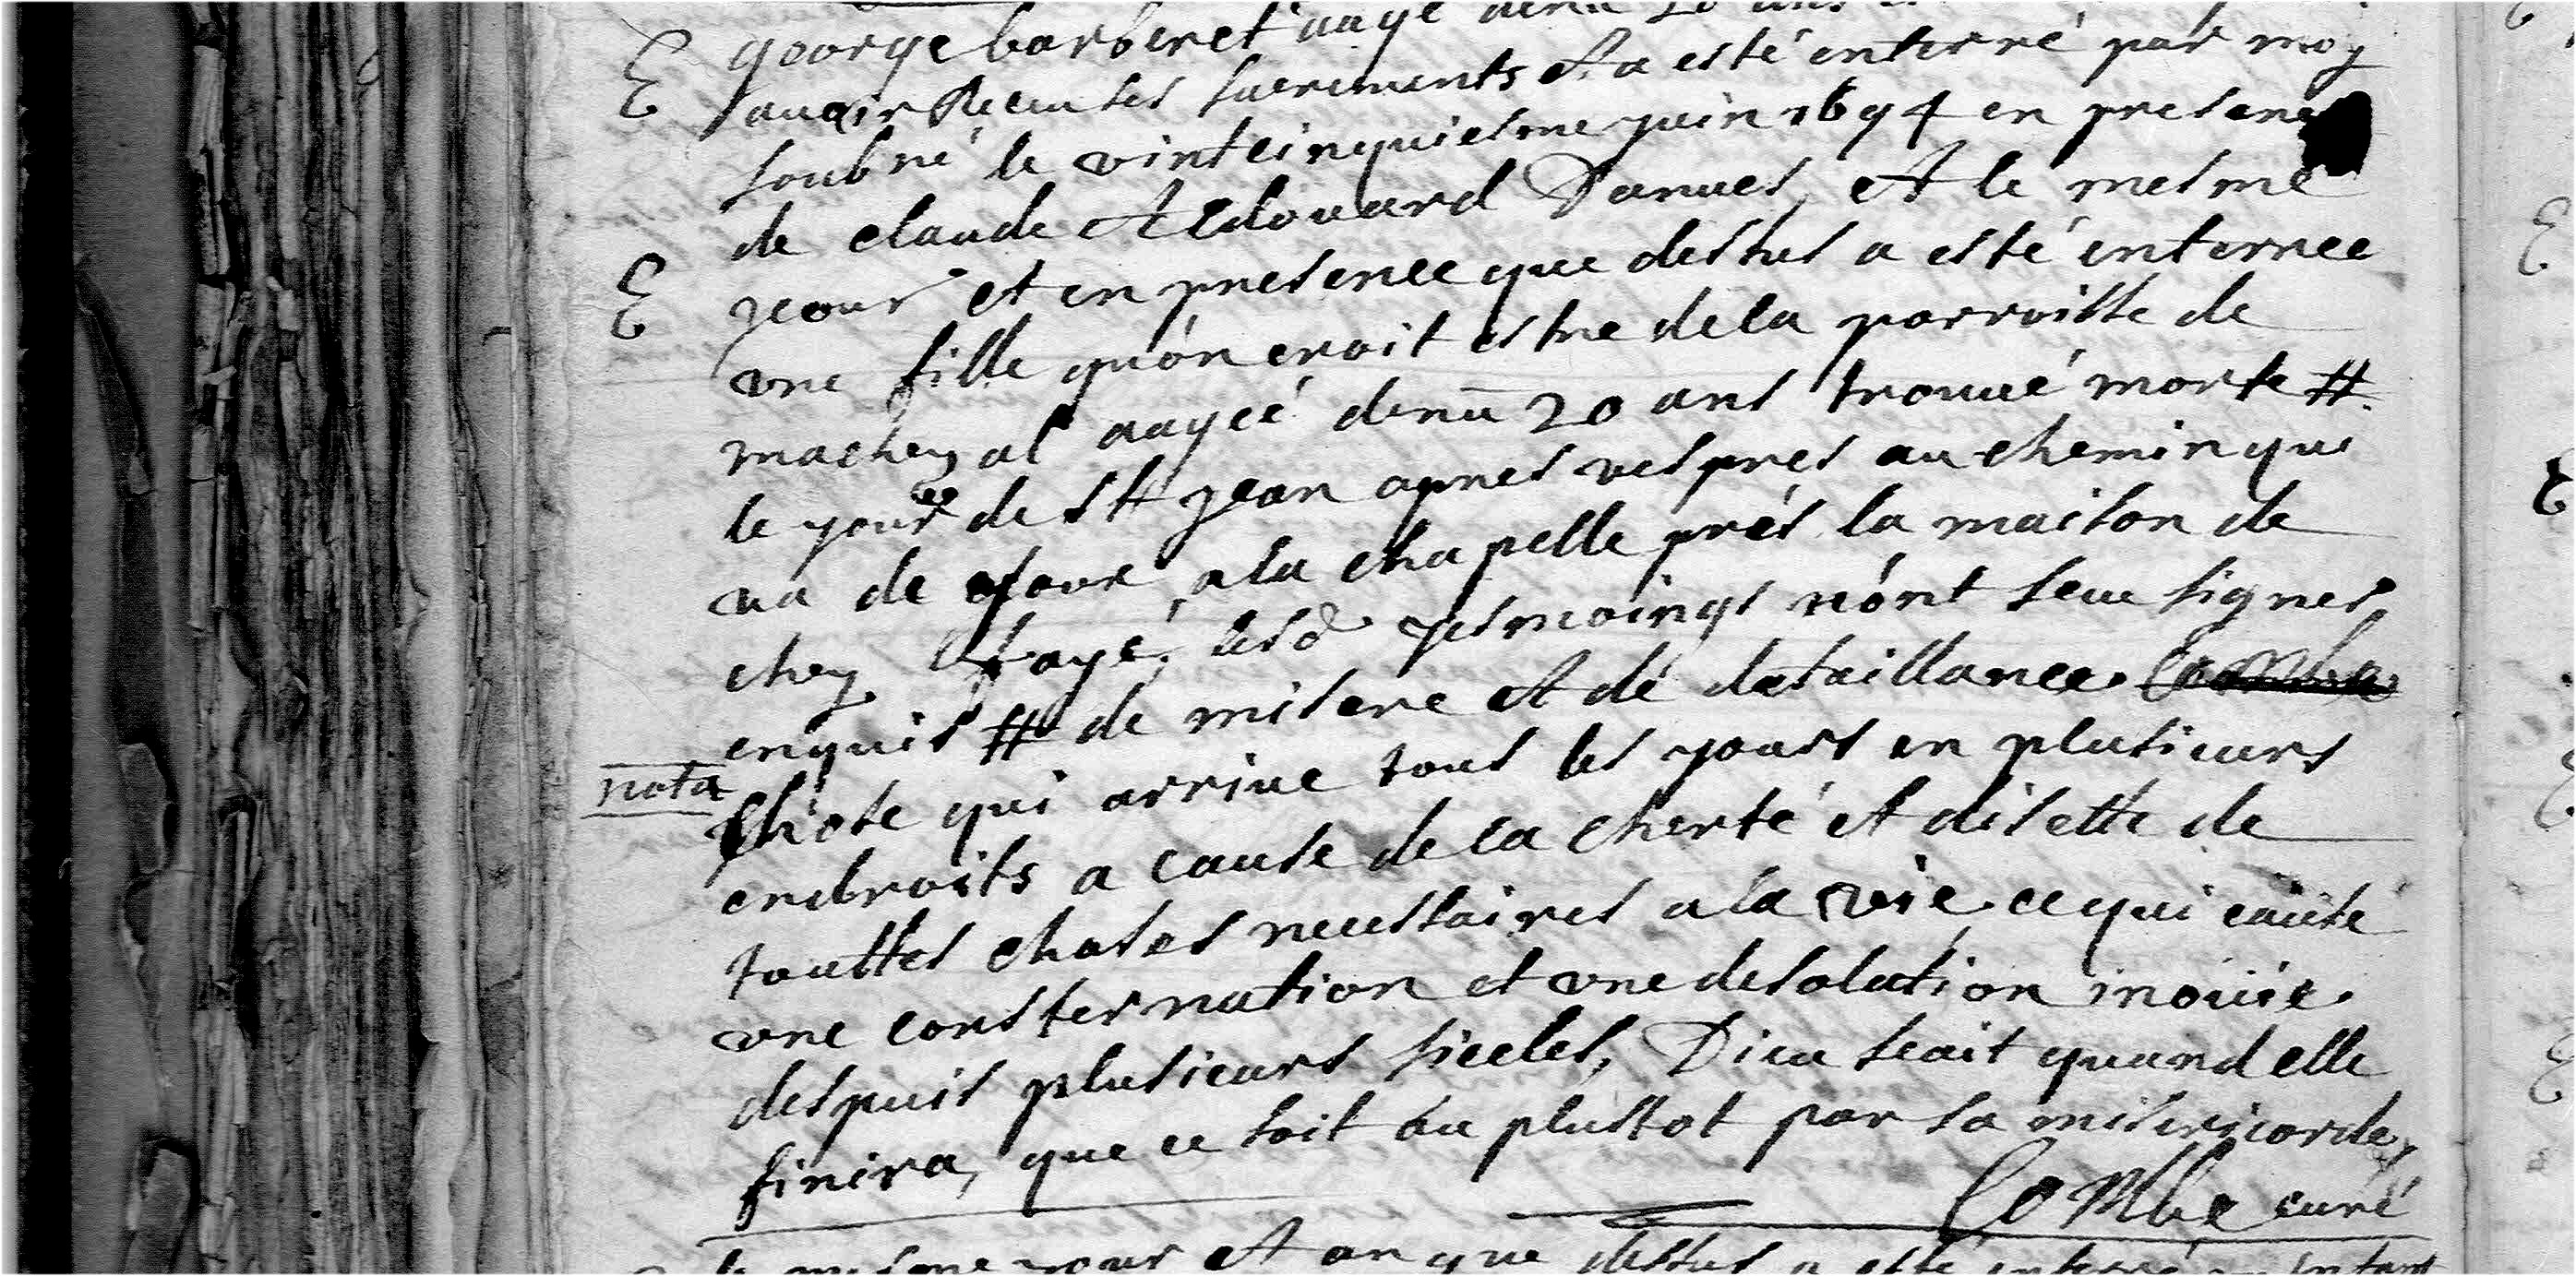 george barberet aagé 20 ans
E avoir Receu ses sacrements et a esté enterré par moy
soubné le vintcinquiesme juin 1694 en presence
de claude et Edouard Danves et le mesme
E jour et en presence que dessus a esté enterree
vne fille qu'on croit estre de la parroisse de
machezal aagée denū 20 ans trouué morte #
le jour de st jean apres vespres au chemin qui
va de a la chapelle prés la maison de
chez lesd tesmoings n'ont sceu signer
enquis # de misere et de defaillance. Combe
nota Chose qui arriue tous les jours en plusieurs
endroits a cause de la cherté et disette de
touttes choses necessaires a la vie ce qui cause
vne consternation et vne desolation inoüie
despuis plusieurs siecles, Dieu scait quand elle
finira, que ce soit au plustot par sa misericorde
Combe curé
le mesme jour et an que dessus a esté enterré enfant